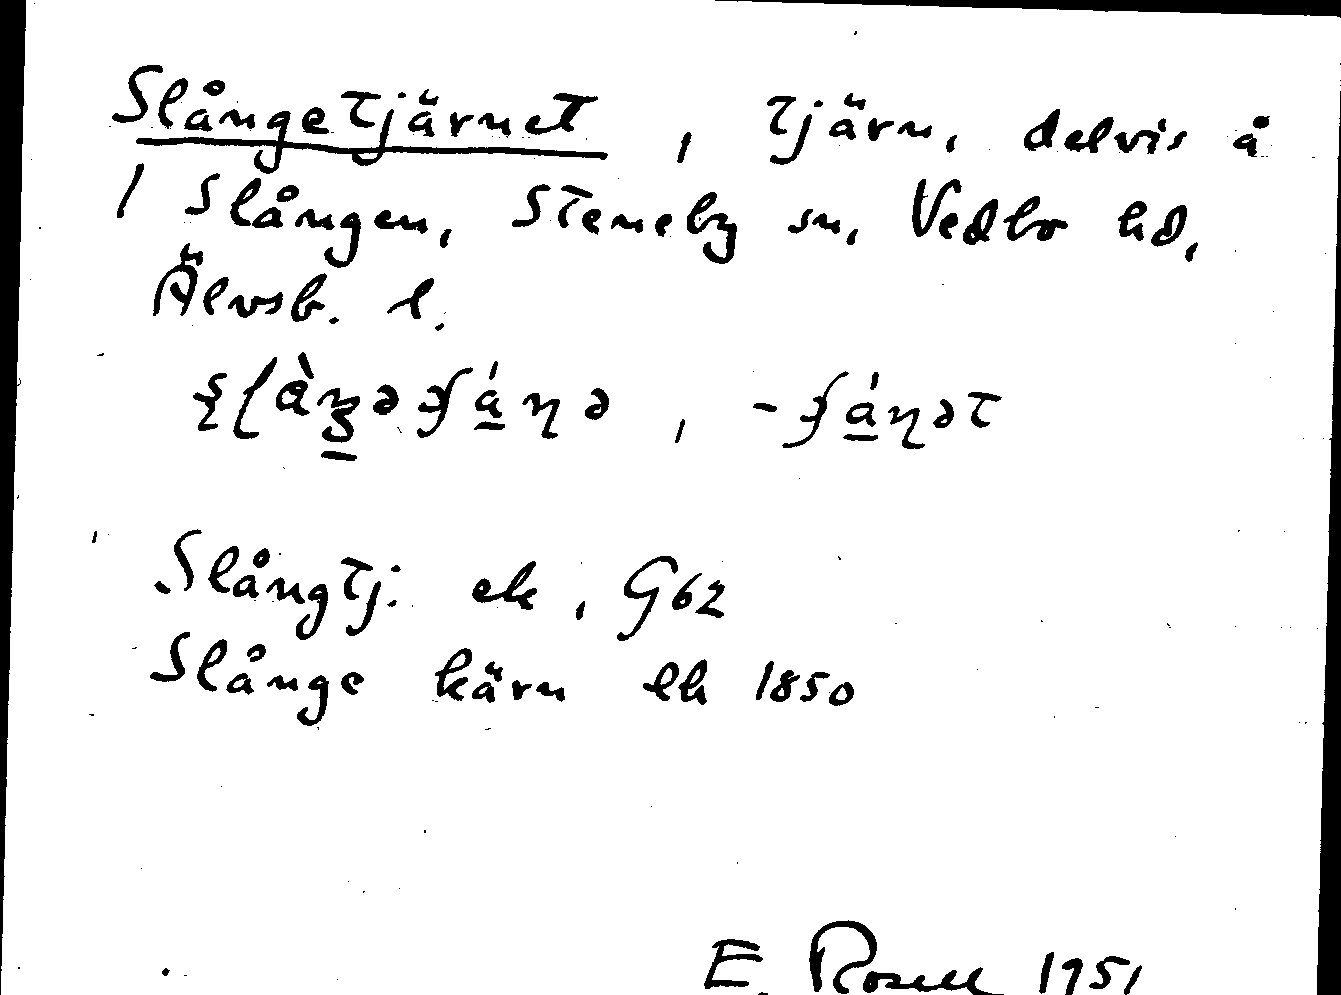 Slångetjärnet, tjärn, delvis å
/ Slången, Steneby sn, Vedbo hd,
Älvsb. l.
Slångtj. ek, G62
Slånge kärn ek 1850
E. Rosell 1951